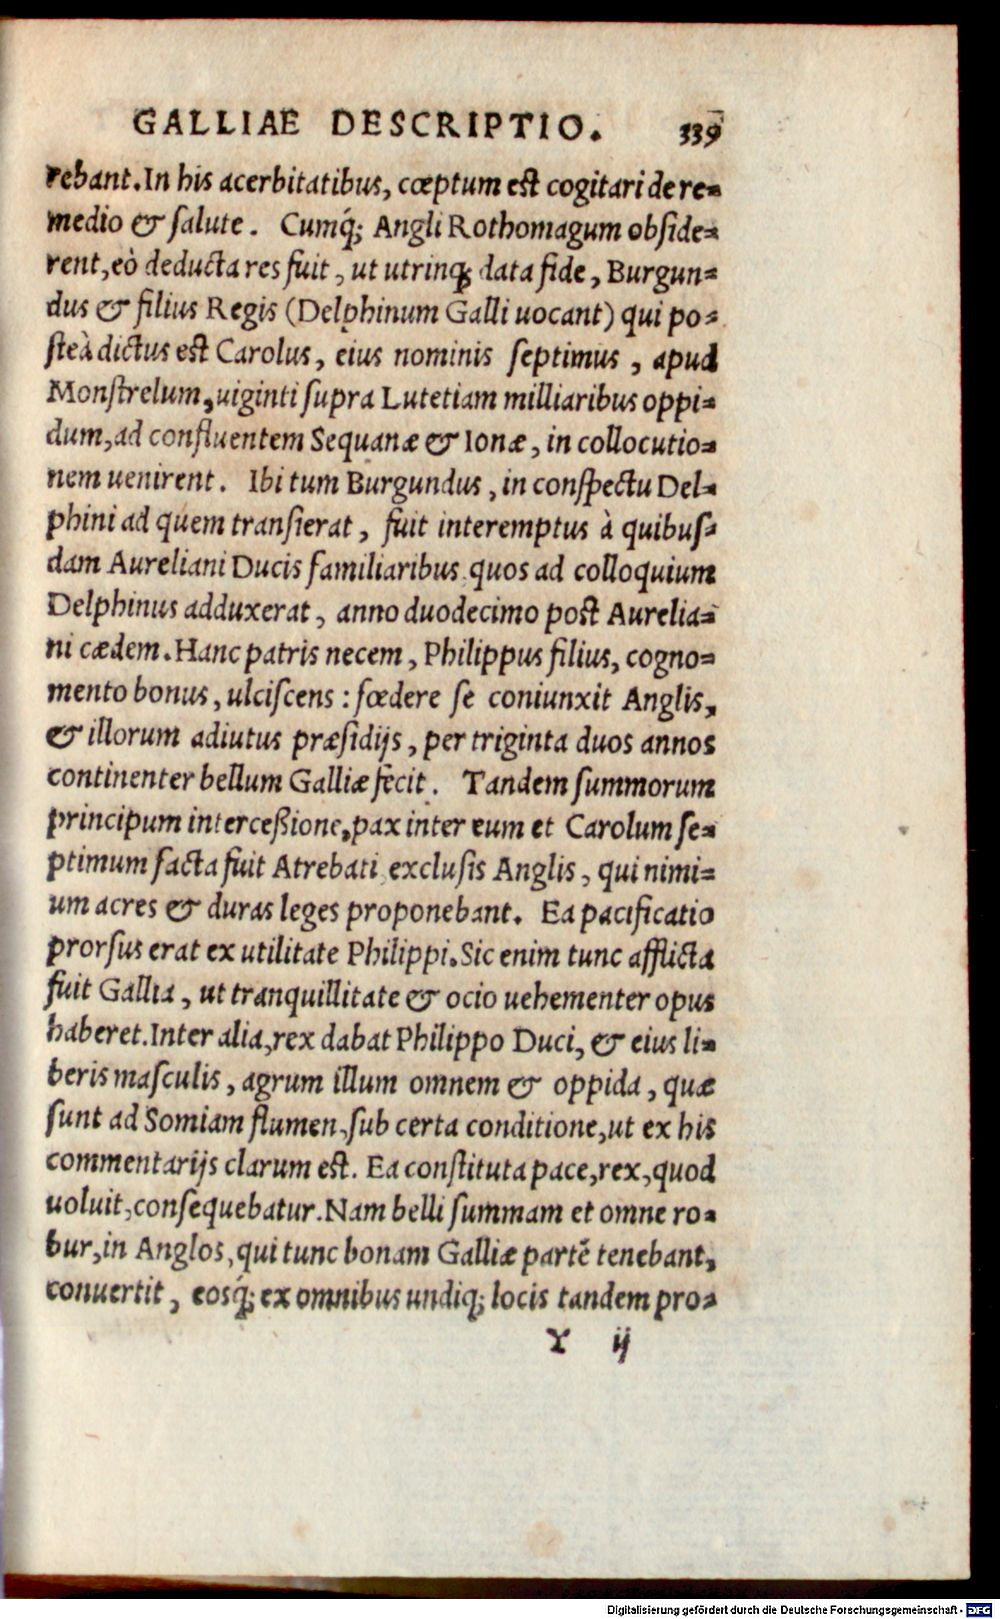 GALLIAE DESCRIPTIO. 339
rebant. In his acerbitatibus, cœptum est cogitari de re=
medio & salute. Cumq́; Angli Rothomagum obside=
rent, eò deducta res fuit, ut utrinq; data fide, Burgun=
dus & filius Regis (Delphinum Galli uocant) qui po=
steà dictus est Carolus, eius nominis septimus, apud
Monstrelum, uiginti supra Lutetiam milliaribus oppi=
dum, ad confluentem Sequanæ & Ionæ, in collocutio=
nem uenirent. Ibi tum Burgundus, in conspectu Del=
phini ad quem transierat, fuit interemptus à quibus=
dam Aureliani Ducis familiaribus, quos ad colloquium
Delphinus adduxerat, anno duodecimo post Aurelia=
ni cædem. Hanc patris necem, Philippus filius, cogno=
mento bonus, ulciscens: fœdere se coniunxit Anglis,
& illorum adiutus præsidijs, per triginta duos annos
continenter bellum Galliæ fecit. Tandem summorum
principum interceßione, pax inter eum et Carolum se=
ptimum facta fuit Atrebati, exclusis Anglis, qui nimi=
um acres & duras leges proponebant. Ea pacificatio
prorsus erat ex utilitate Philippi. Sic enim tunc afflicta
fuit Gallia, ut tranquillitate & ocio uehementer opus
haberet. Inter alia, rex dabat Philippo Duci, & eius li=
beris masculis, agrum illum omnem & oppida, quæ
sunt ad Somiam flumen, sub certa conditione, ut ex his
commentarijs clarum est. Ea constituta pace, rex, quod
uoluit, consequebatur. Nam belli summam et omne ro=
bur, in Anglos, qui tunc bonam Galliæ partē tenebant,
conuertit, eosq́; ex omnibus undiq; locis tandem pro=
Y ij
Digitalisierung gefördert durch die Deutsche Forschungsgemeinschaft - DFG